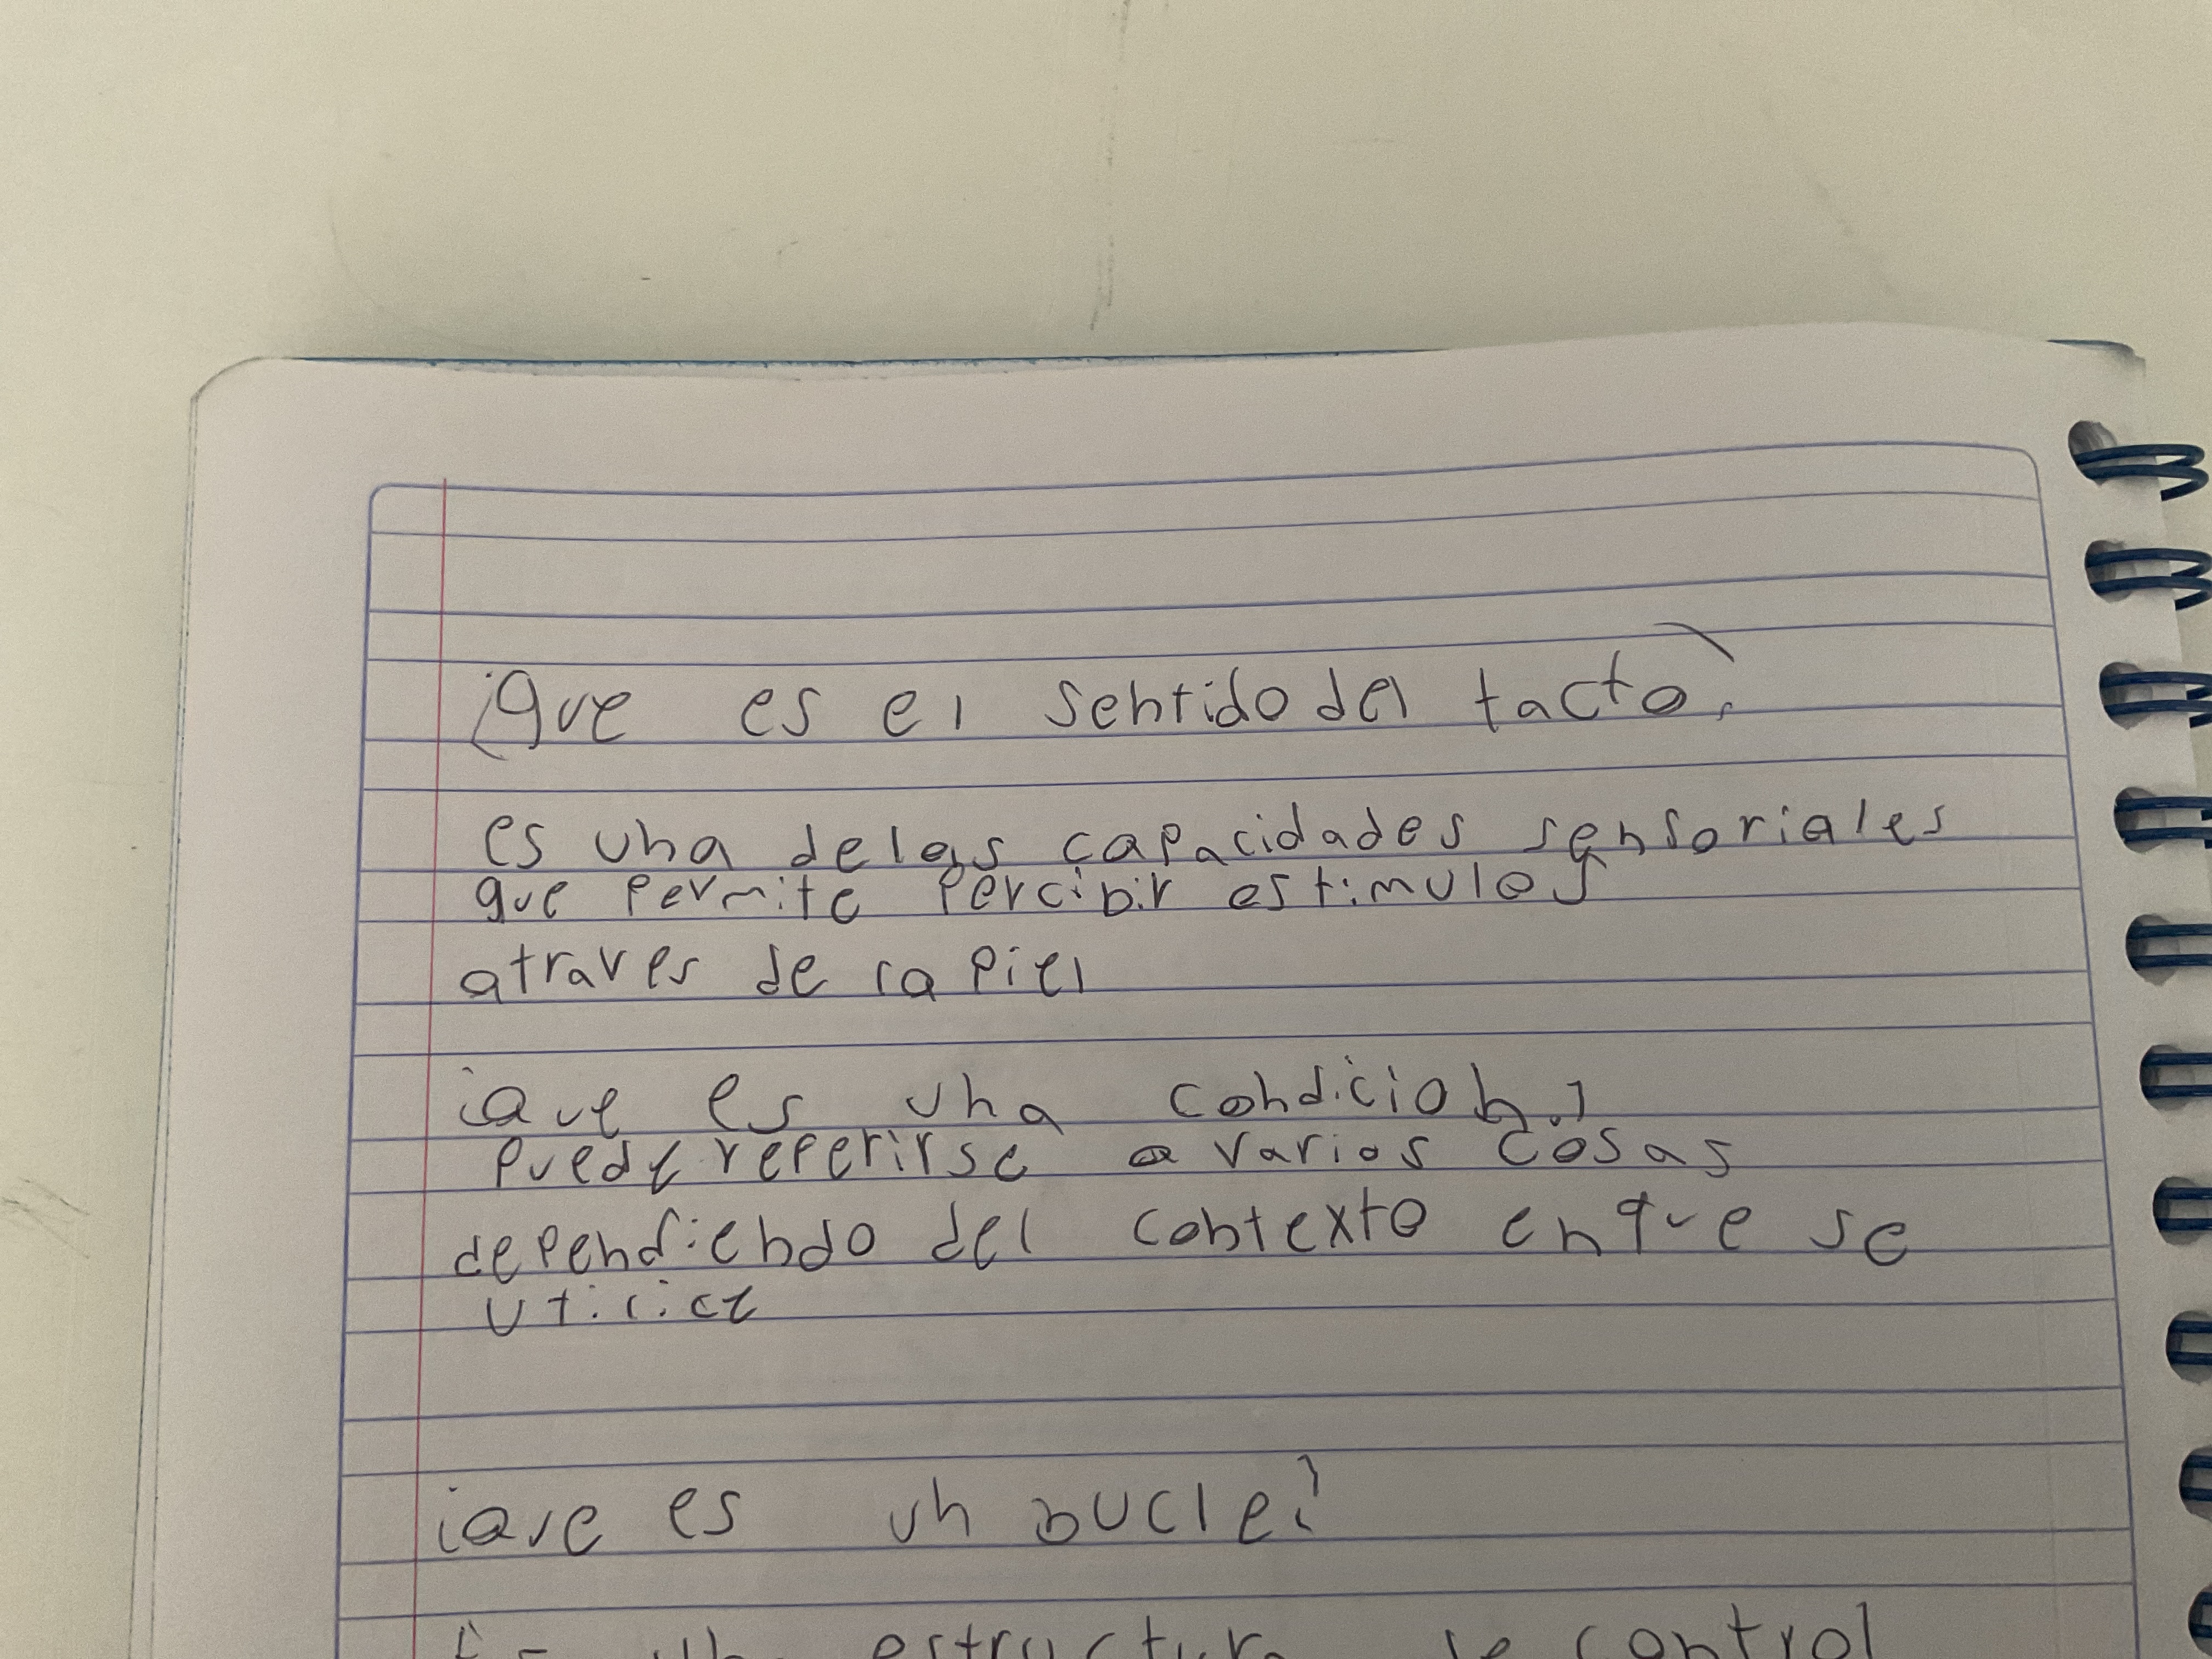 ¿Que es el sentido del tacto?
es una delas capacidades sensoriales
que permite percibir estimulos
atraves de la piel
¿Que es una condicion?
puede reperirse a varios cosas
dependiendo del contexto en que se
utilice
¿Que es un bucle?
Es una estructura de control